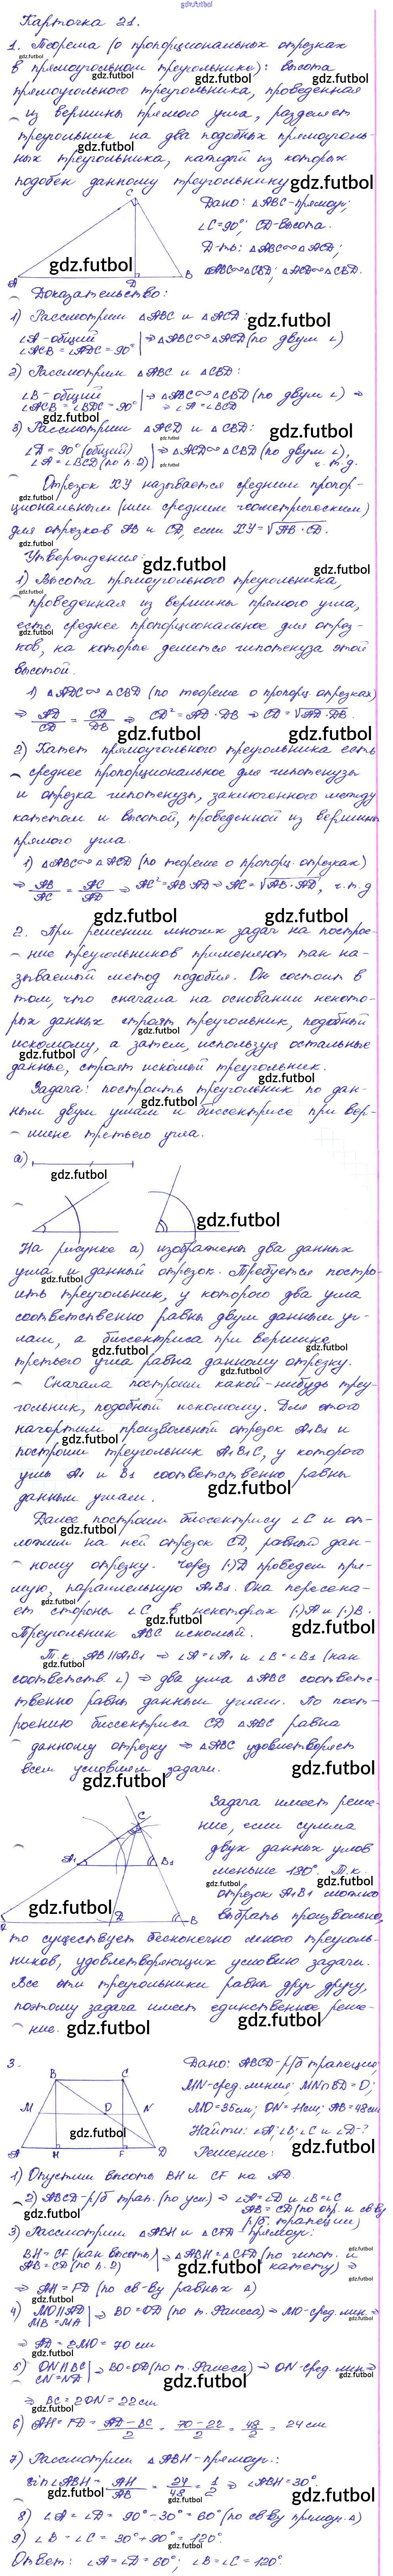 gdz.futbol
Карточка 21.
1. Теорема (о пропорциональных отрезках
в прямоугольном треугольнике): высота
прямоугольного треугольника, проведенная
из вершины прямого угла, разделяет
треугольник на два подобных прямоуголь-
ных треугольника, каждый из которых
подобен данному треугольнику
Дано: △ABC-прямоуг;
∠C=90°; CD-высота.
Д-ть: △ABC∾△ACD;
△ABC∾△CBD; △ACD∾△CBD.
C
A D B
Доказательство:
1) Рассмотрим △ABC и △ACD:
∠A-общий |⇒△ABC∾△ACD (по двум ∠)
∠ACB = ∠ADC = 90°
2) Рассмотрим △ABC и △CBD:
∠B-общий |⇒ △ABC∾△CBD (по двум ∠) ⇒
∠ACB = ∠BDC = 90° ⇒ ∠A = ∠BCD
3) Рассмотрим △ACD и △CBD:
∠D = 90° (общий) |⇒ △ACD∾△CBD (по двум ∠),
∠A = ∠BCD (по п. 2) ч.т.д.
Отрезок XY называется средним пропор-
циональным (или средним геометрическим)
для отрезков AB и CD, если XY=√AB·CD.
Утверждения:
1) Высота прямоугольного треугольника,
проведенная из вершины прямого угла,
есть среднее пропорциональное для отрез-
ков, на которые делится гипотенуза этой
высотой.
1) △ADC∾△CBD (по теореме о пропорц. отрезках)
⇒ AD/CD = CD/DB ⇒ CD² = AD·DB ⇒ CD = √AD·DB.
2) Катет прямоугольного треугольника есть
среднее пропорциональное для гипотенузы
и отрезка гипотенузы, заключенного между
катетом и высотой, проведенной из вершины
прямого угла.
1) △ABC∾△ACD (по теореме о пропорц. отрезках)
⇒ AB/AC = AC/AD ⇒ AC² = AB·AD ⇒ AC = √AB·AD, ч.т.д
2. При решении многих задач на построе-
ние треугольников применяют так на-
зываемый метод подобия. Он состоит в
том, что сначала на основании некото-
рых данных строят треугольник, подобный
искомому, а затем, используя остальные
данные, строят искомый треугольник.
Задача: построить треугольник по дан-
ным двум углам и биссектрисе при вер-
шине третьего угла.
а)
На рисунке а) изображены два данных
угла и данный отрезок. Требуется постро-
ить треугольник, у которого два угла
соответственно равны двум данным уг-
лам, а биссектриса при вершине
третьего угла равна данному отрезку.
Сначала построим какой-нибудь треу-
гольник, подобный искомому. Для этого
начертим произвольный отрезок A1B1 и
построим треугольник A1B1C, у которого
углы A1 и B1 соответственно равны
данным углам.
Далее построим биссектрису ∠C и от-
ложим на ней отрезок CD, равный дан-
ному отрезку. Через (·)D проведем пря-
мую, параллельную A1B1. Она пересека-
ет стороны ∠C в некоторых (·)A и (·)B.
Треугольник ABC искомый.
Т.к. AB∥A1B1 ⇒ ∠A=∠A1 и ∠B=∠B1 (как
соответств. ∠) ⇒ два угла △ABC соответс-
твенно равны данным углам. По пост-
роению биссектриса CD △ABC равна
данному отрезку ⇒ △ABC удовлетворяет
всем условиям задачи.
Задача имеет реше-
ние, если сумма
двух данных углов
меньше 180°. Т.к.
отрезок A1B1 можно
выбрать произвольно,
C
A1 B1
A D B
то существует бесконечно много треуголь-
ников, удовлетворяющих условию задачи.
Все эти треугольники равны друг другу,
поэтому задача имеет единственное реше-
ние.
3.
Дано: ABCD-р/б трапеция;
MN-сред. линия; MN∩BD=O;
MO=35см; ON=11см; AB=48см
Найти: ∠A; ∠B; ∠C и ∠D-?
Решение:
B C
M O N
A H F D
1) Опустим высоты BH и CF на AD.
2) ABCD-р/б трап. (по усл.) ⇒ ∠A=∠D и ∠B=∠C
AB = CD (по опр. и св-ву
р/б. трапеции)
3) Рассмотрим △ABH и △CFD-прямоуг:
BH = CF (как высоты) |⇒ △ABH = △CFD (по гипот. и
AB = CD (по п. 2) катету) ⇒
⇒ AH = FD (по св-ву равных △)
4) MO∥AD |⇒ BO=OD (по т. Фалеса) ⇒ MO-сред. лин ⇒
MB = MA
⇒ AD = 2MO = 70 см
5) ON∥BC |⇒ BO=OD (по т. Фалеса) ⇒ ON-сред. лин ⇒
CN=ND
⇒ BC = 2ON = 22см
6) AH = FD = AD-BC/2 = 70-22/2 = 48/2 = 24 см.
7) Рассмотрим △ABH-прямоуг.:
sin∠ABH = AH/AB = 24/48 = 1/2 ⇒ ∠ABH=30°.
8) ∠A = ∠D = 90°-30° = 60° (по св-ву прямоуг. △)
9) ∠B = ∠C = 30°+90° = 120°.
Ответ: ∠A=∠D=60°; ∠B=∠C=120°.